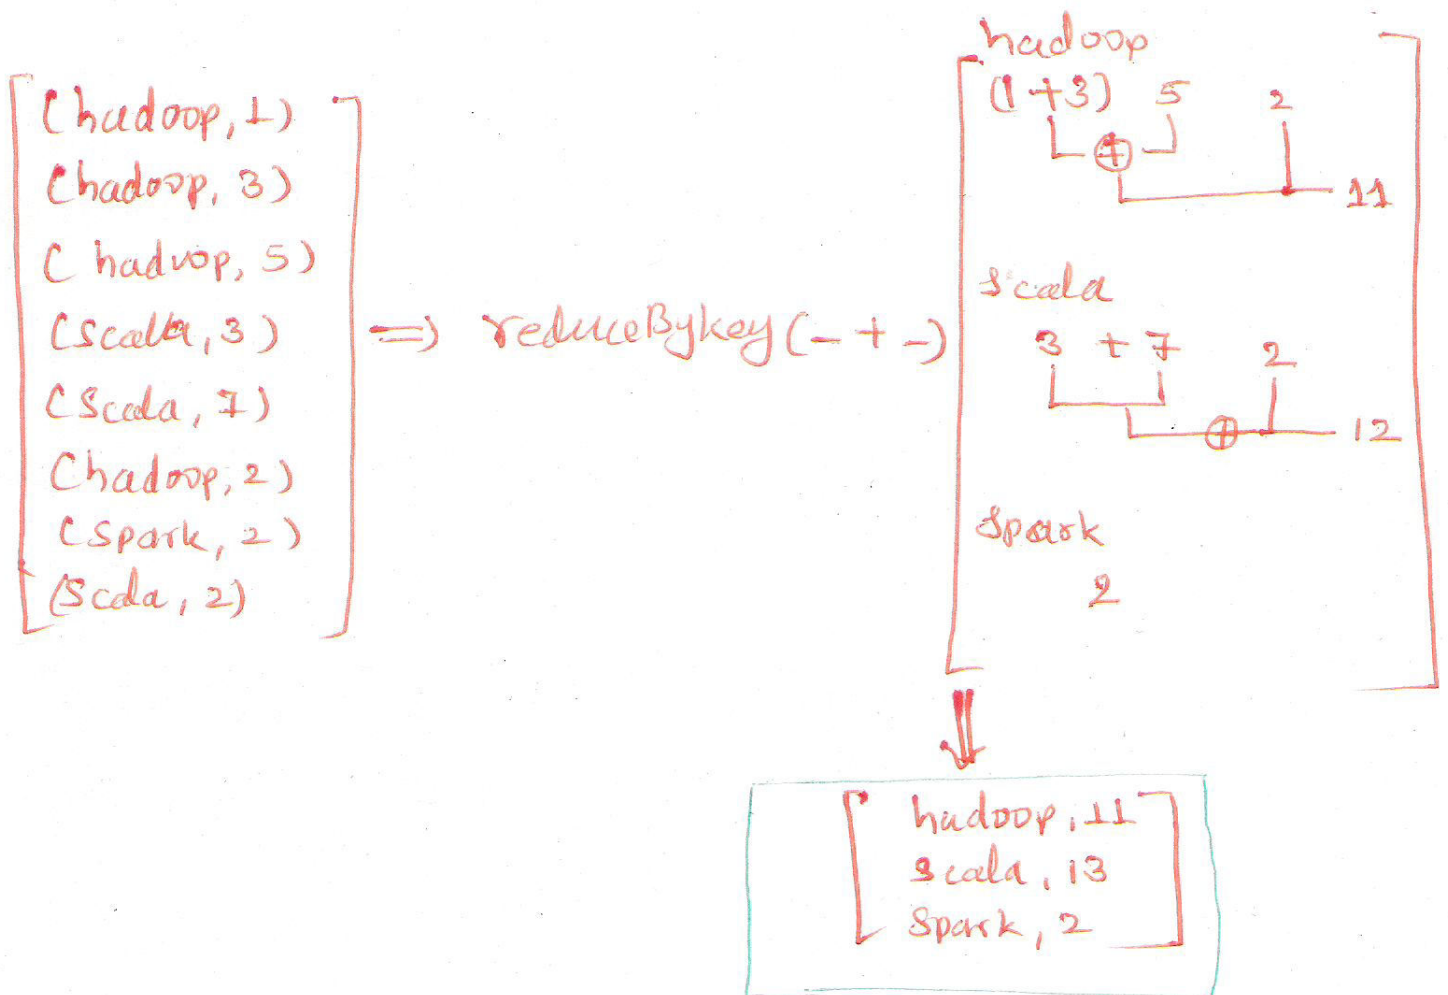 (hadoop, 1)
(hadoop, 3)
(hadoop, 5)
(scala, 3)
(scala, 7)
(hadoop, 2)
(spark, 2)
(scala, 2)
=> reduceBykey(_ + _)
hadoop
(1+3) 5 2
+
11
scala
3 + 7 2
+ 12
spark
2
hadoop, 11
scala, 13
spark, 2